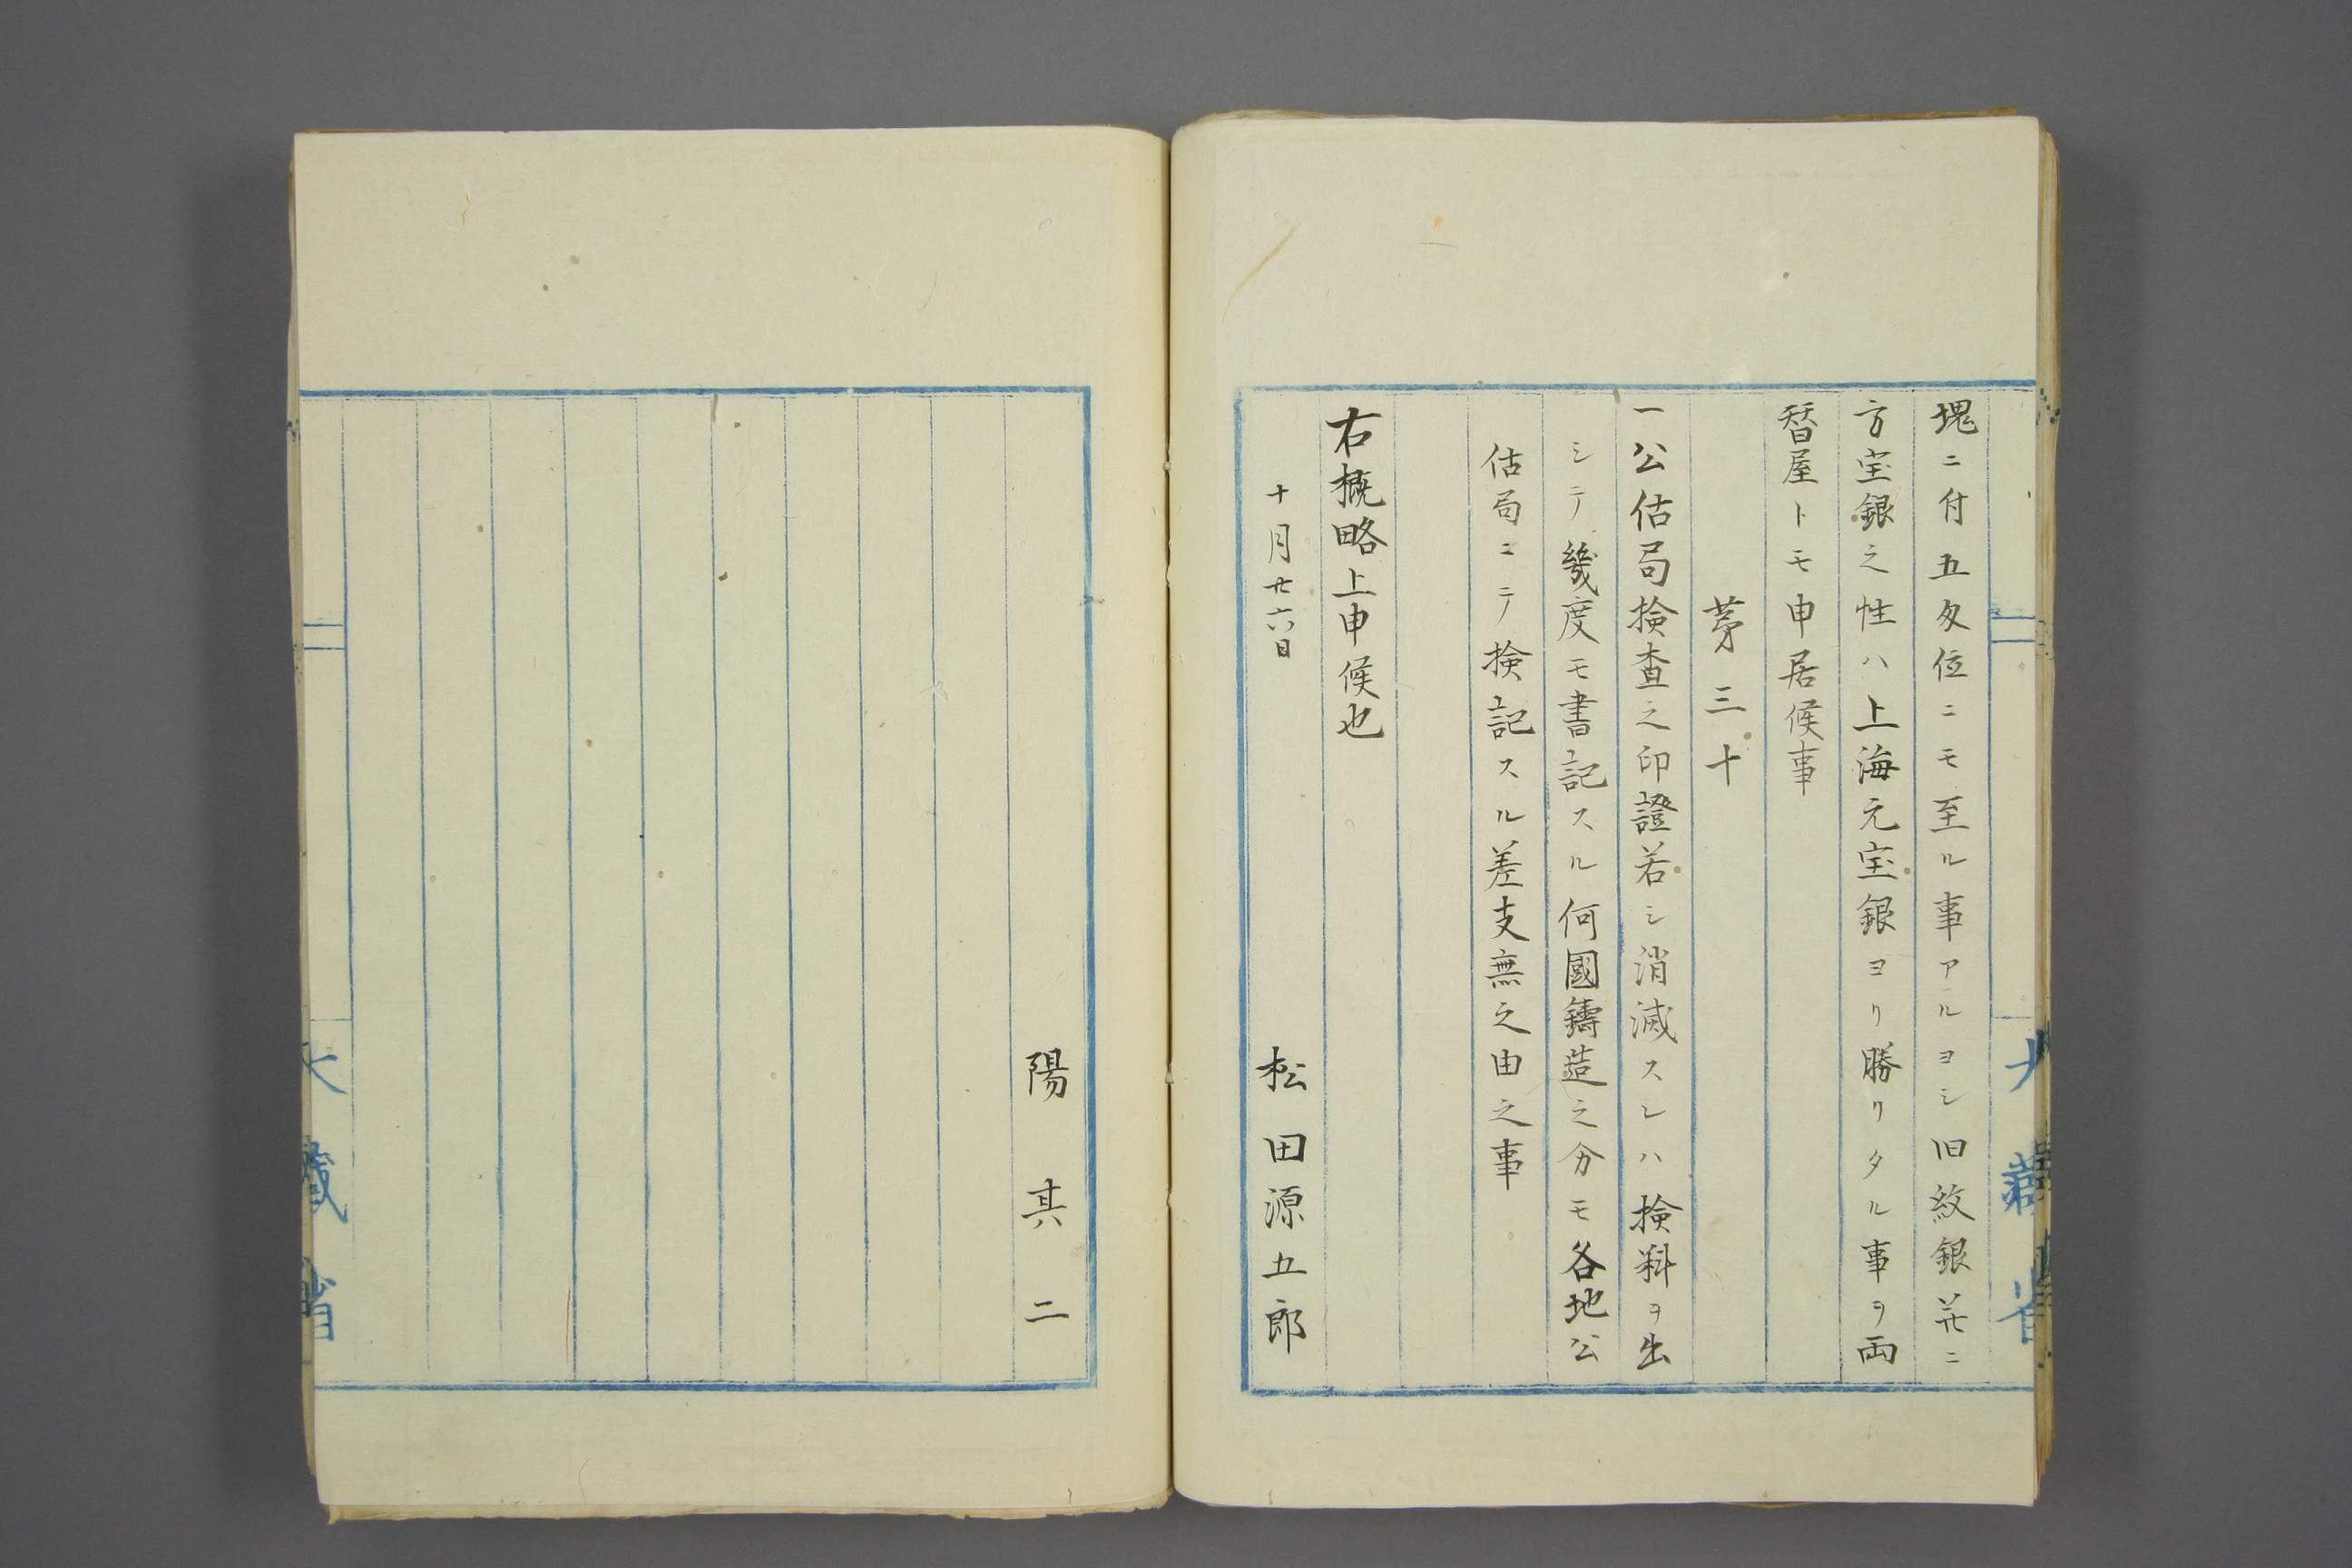 塊ニ付五匁位ニモ至ル事アルヨシ旧紋銀并ニ
方宝銀之性ハ上海元宝銀ヨリ勝リタル事ヲ両
替屋トモ申居候事
第三十
一公估局検査之印證若シ消滅スレハ検料ヲ出
シテ幾度モ書記スル何國鑄造之分モ各地公
估局ニテ検記スル差支無之由之事
右概略上申候也
十月廿六日
松田源五郎
陽其二
大藏省
大藏省